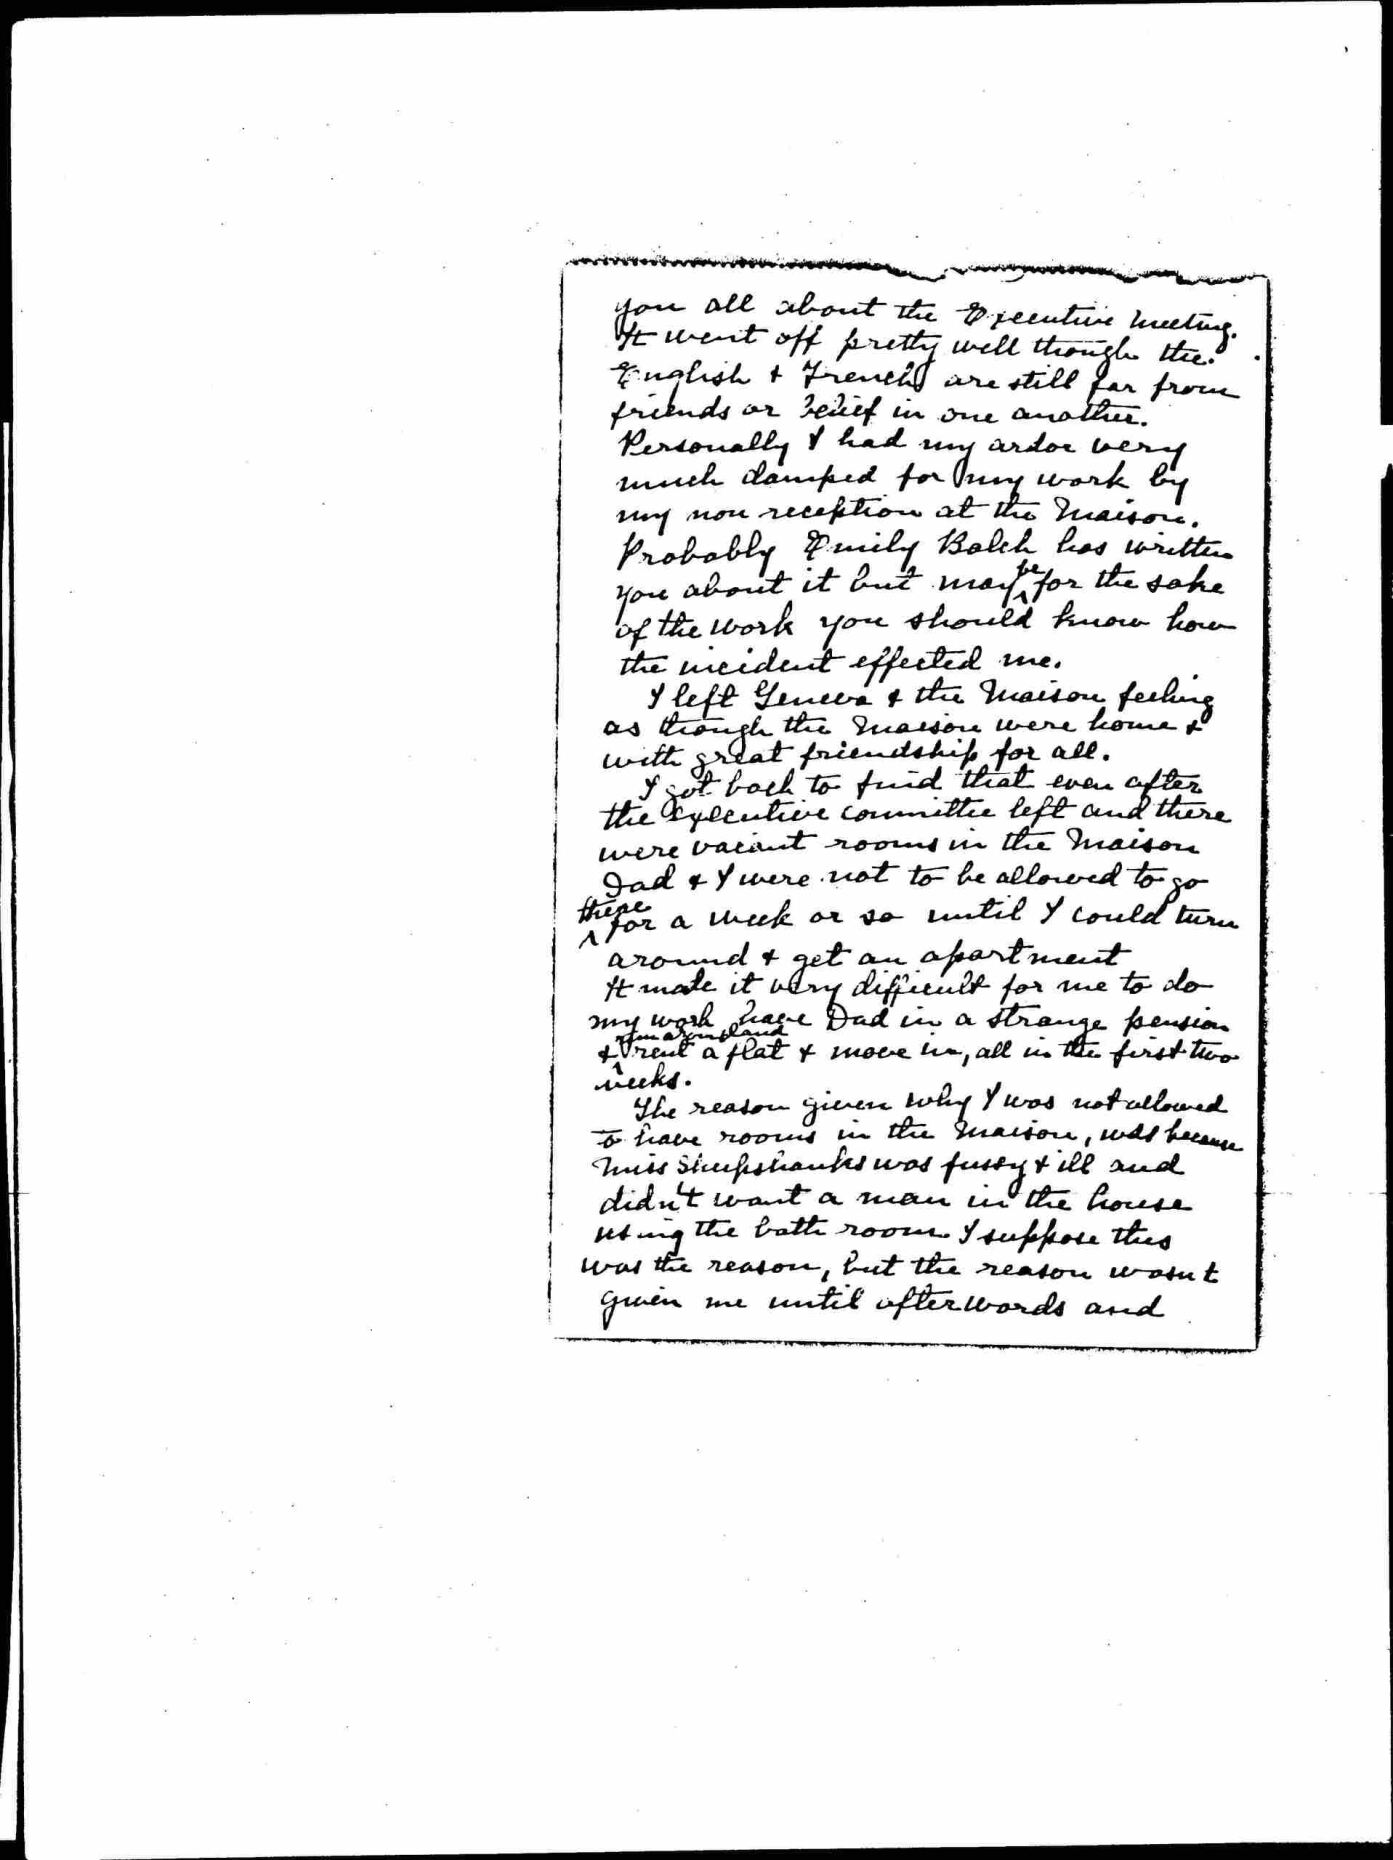 you all about the Executive Meeting.
It went off pretty well though the
English & French are still far from
friends or belief in one another.
Personally I had my ardor very
much damped for my work by
my non reception at the Maison.
Probably Emily Balch has written
you about it but may be for the sake
of the work you should know how
the incident effected me.
I left Geneva & the Maison feeling
as though the Maison were home &
with great friendship for all.
I got back to find that even after
the Executive committee left and there
were vacant rooms in the Maison
Dad & I were not to be allowed to go
there for a week or so until I could turn
around & get an apartment
It made it very difficult for me to do
my work have Dad in a strange pension
& run around and rent a flat & move in, all in the first two
weeks.
The reason given why I was not allowed
to have rooms in the Maison, was because
Miss Sheepshanks was fussy & ill and
didn't want a man in the house
using the bath room. I suppose this
was the reason, but the reason wasn't
given me until afterwords and